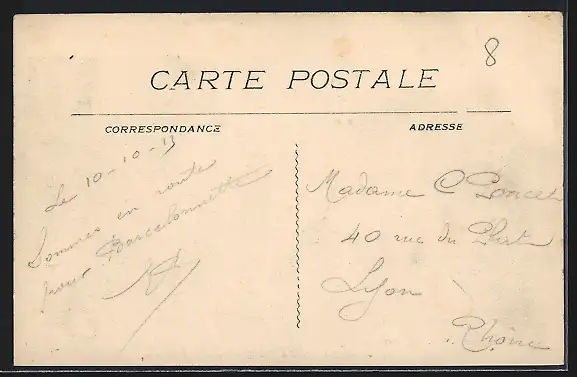 8
CARTE POSTALE
CORRESPONDANCE
ADRESSE
Le 10-10-13
Sommes en route
pour Barcelonnette
Madame C Poncet
40 rue du Plat
Lyon
Rhône